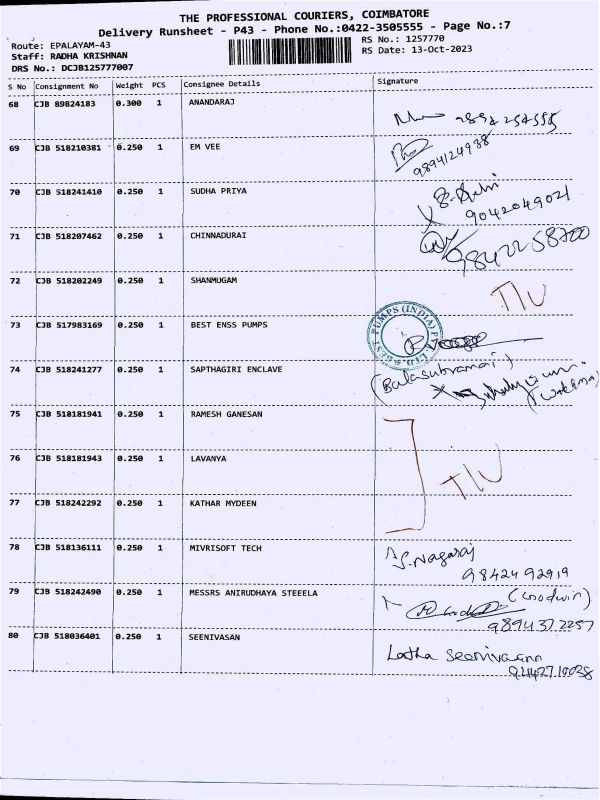 THE PROFESSIONAL COURIERS, COIMBATORE
Delivery Runsheet - P43 - Phone No.:0422-3505555 - Page No.:7
Route: EPALAYAM-43
RS No.: 1257770
Staff: RADHA KRISHNAN
RS Date: 13-Oct-2023
DRS No.: DCJB125777007
S No Consignment No Weight PCS Consignee Details Signature
68 CJB 89824183 0.300 1 ANANDARAJ
69 CJB 518210381 0.250 1 EM VEE
9894124938
70 CJB 518241410 0.250 1 SUDHA PRIYA
9042049021
71 CJB 518207462 0.250 1 CHINNADURAI
9842258700
72 CJB 518202249 0.250 1 SHANMUGAM
T/U
73 CJB 517983169 0.250 1 BEST ENSS PUMPS
BEST PUMPS (INDIA) PVT. LTD.
74 CJB 518241277 0.250 1 SAPTHAGIRI ENCLAVE
75 CJB 518181941 0.250 1 RAMESH GANESAN
76 CJB 518181943 0.250 1 LAVANYA
T/U
77 CJB 518242292 0.250 1 KATHAR MYDEEN
78 CJB 518136111 0.250 1 MIVRISOFT TECH
S.Nagaraj
9842492919
79 CJB 518242490 0.250 1 MESSRS ANIRUDHAYA STEEELA
(Goodwin)
9894372257
80 CJB 518036401 0.250 1 SEENIVASAN
Latha